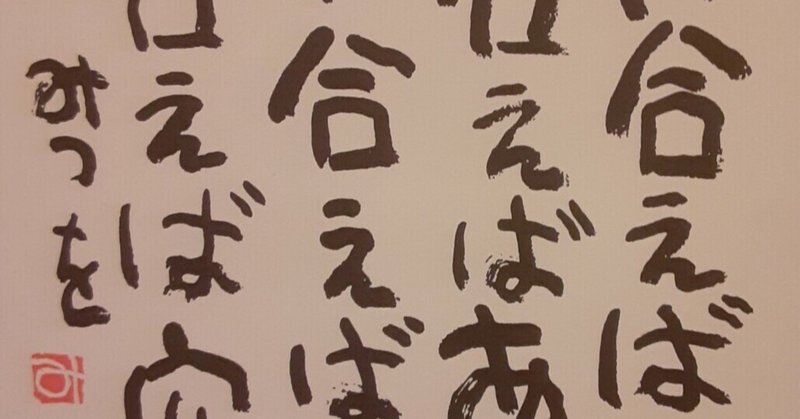 合えば
えばあ
合えば
えば
みつを
み